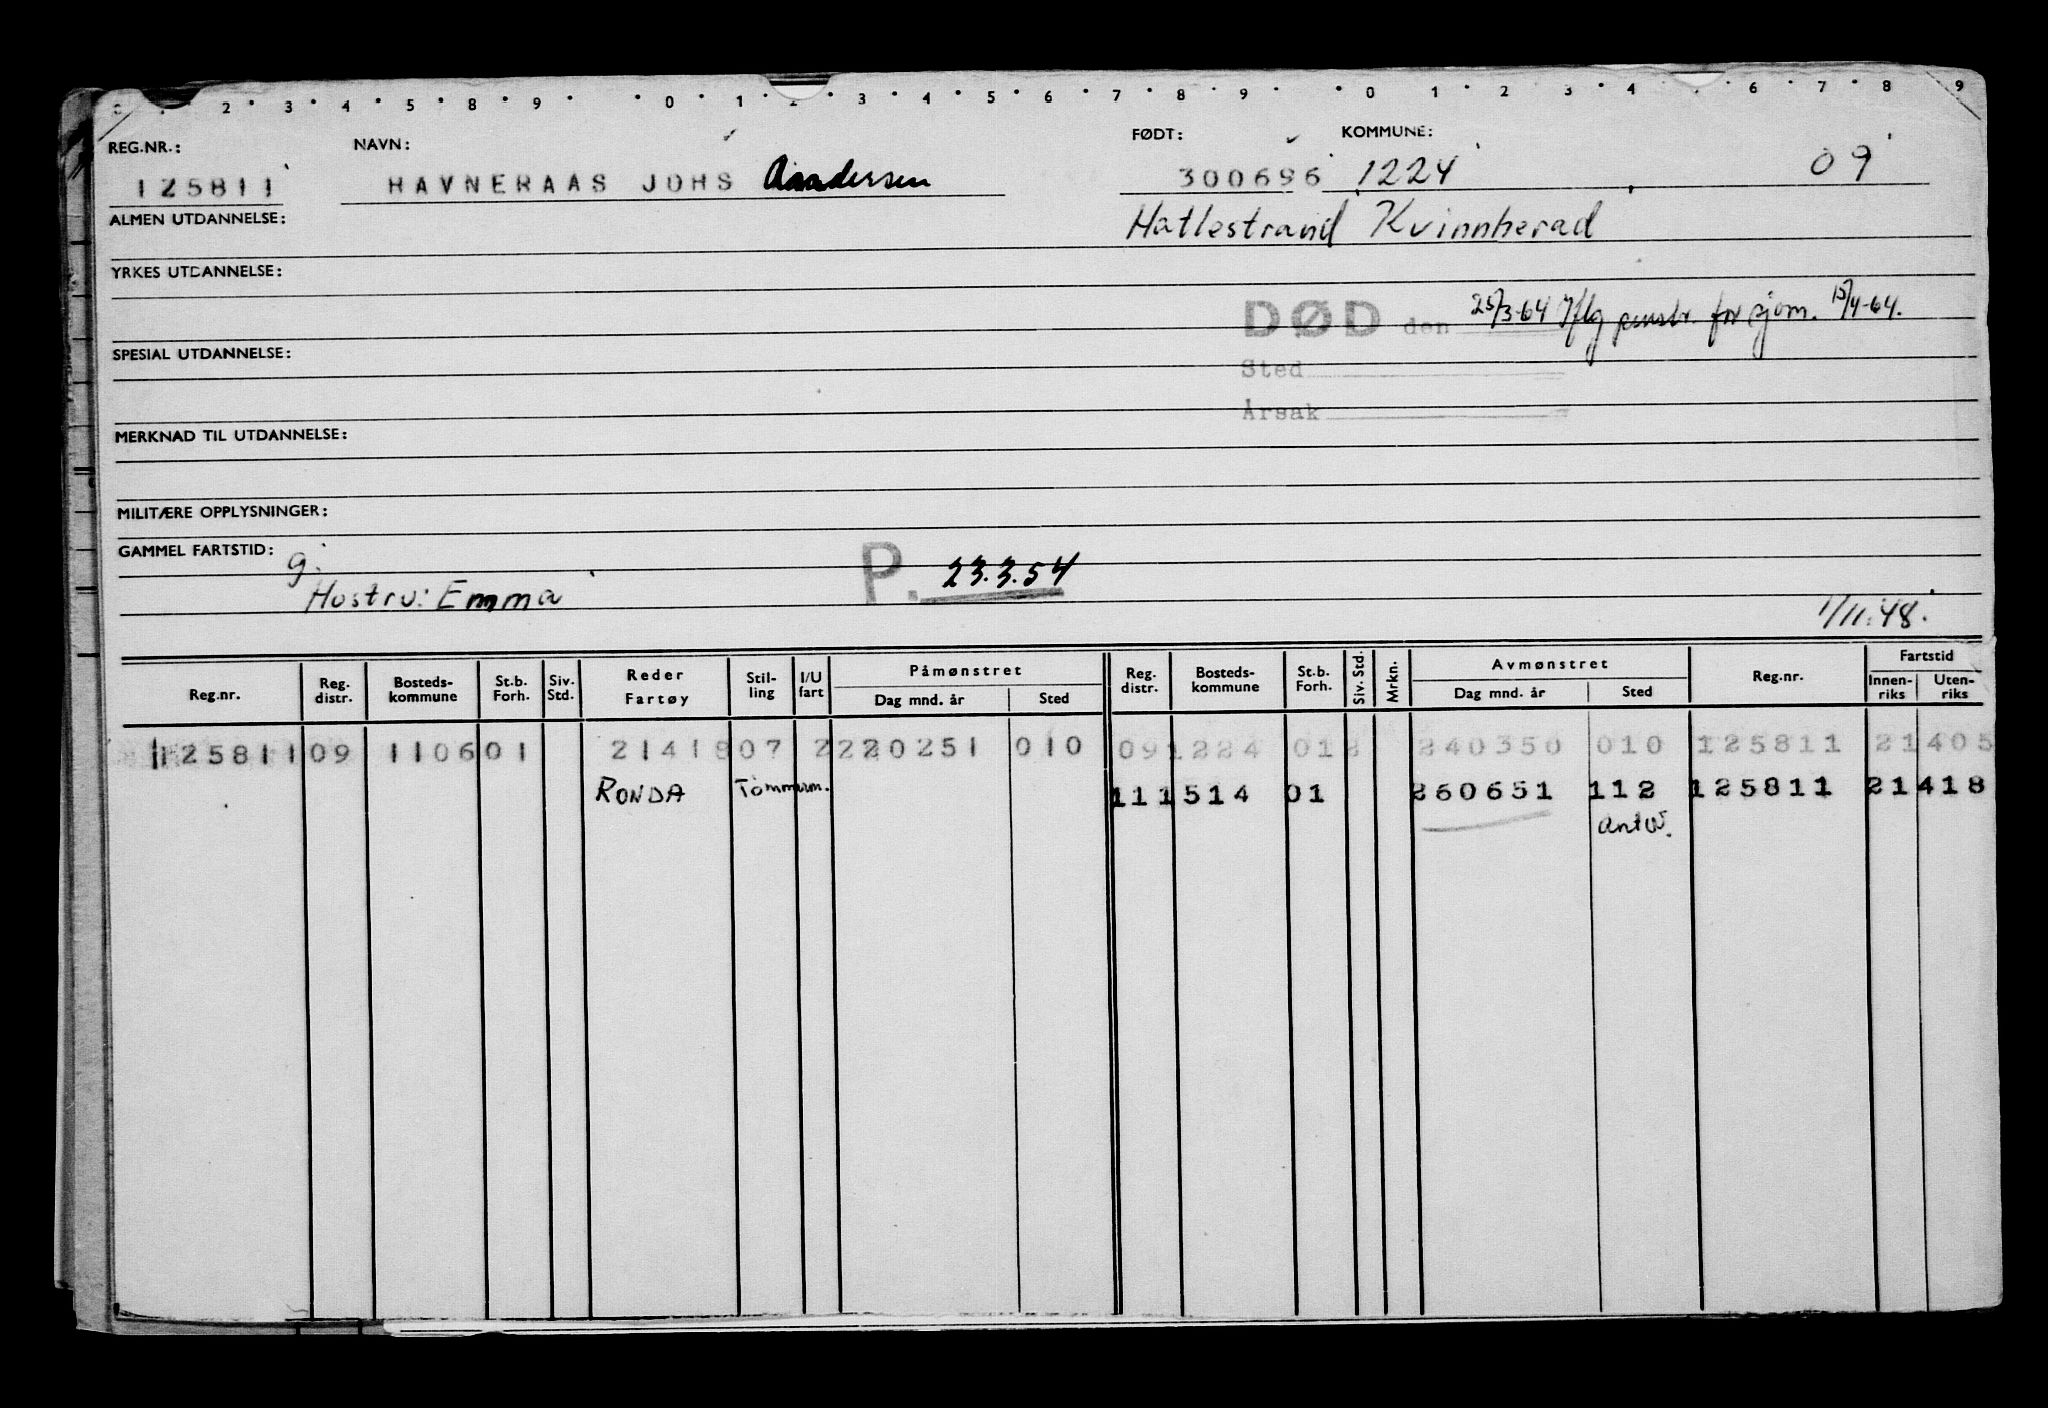 0 2 3 4 5 8 9 0 1 2 3 4 5 6 7 8 9 0 1 2 3 4 6 7 8 9
REG.NR.: NAVN: FØDT: KOMMUNE:
125811 HAVNERAAS JOHS 300696 1224 09
ALMEN UTDANNELSE: Hatlestrand Kvinnherad
YRKES UTDANNELSE:
DØD den 25/3-64 Iflg penstr. for sjøm. 15/4-64.
SPESIAL UTDANNELSE: Sted
Årsak
MERKNAD TIL UTDANNELSE:
MILITÆRE OPPLYSNINGER:
GAMMEL FARTSTID: g.
P. 23.3.54
Hustru: Emma
1/11.48.
Reg.nr. Reg. distr. Bosteds- kommune St.b. Forh. Siv. Std. Reder Fartøy Stil- ling I/U fart Påmønstret Dag mnd. år Sted Reg. distr. Bosteds- kommune St.b. Forh. Siv. Std. Mrkn. Avmønstret Dag mnd. år Sted Reg.nr. Fartstid Innen- riks Uten- riks
125811 09 1106 01 21418 07 2 220251 010 09 1224 01 2 240350 010 125811 21405
RONDA Tömmerm. 11 1514 01 260651 112 125811 21418
Antw.